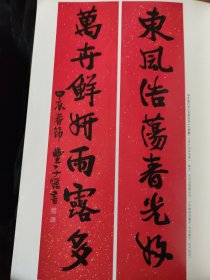 東風浩蕩春光好
萬卉鮮妍雨露多
甲辰春節
豐子愷書